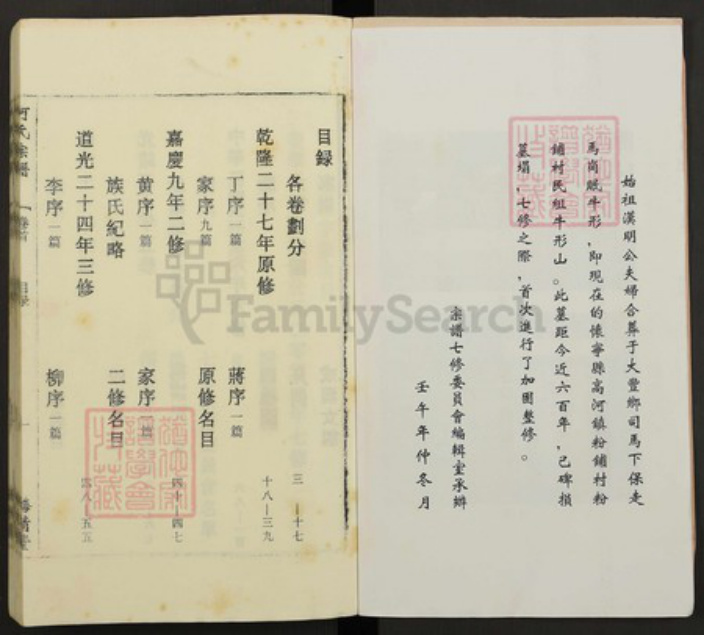 始祖漢明公夫婦合葬于大豐鄉司馬下保走
馬崗眠牛形,即現在的懷寧縣高河鎮粉鋪村粉
鋪村民組牛形山。此墓距今近六百年,已碑損
墓塌,七修之際,首次進行了加固整修。
宗譜七修委員會編輯室承辦
壬午年仲冬月
目録
各卷劃分 三—十七
乾隆二十七年原修 十八—三九
丁序一篇 蔣序一篇
家序九篇 原修名目
嘉慶九年二修 四十—四七
黄序一篇 家序一篇
族氏紀略 二修名目
道光二十四年三修 四八—五五
李序一篇 柳序一篇
氏宗譜 卷首 目录
FamilySearch